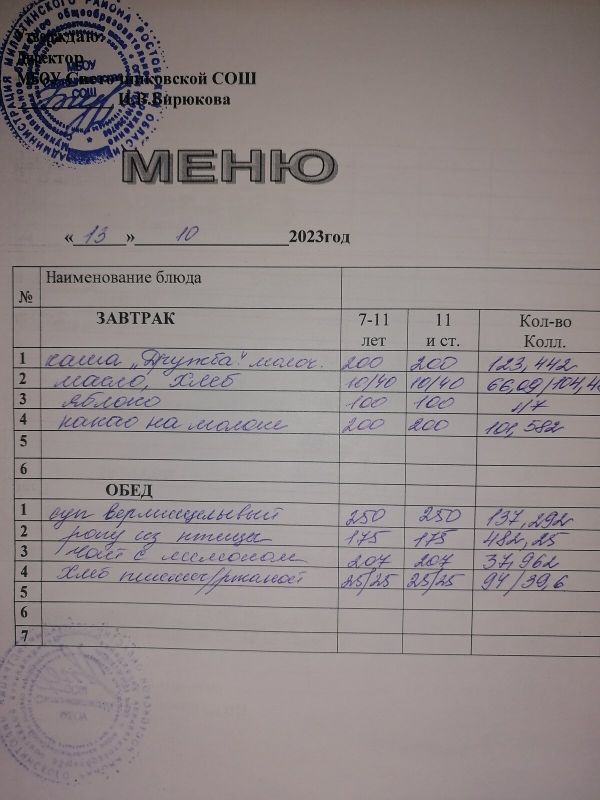 Утверждаю:
Директор
МБОУ СОШ
И.В.Бирюкова
МЕНЮ
« 13 » 10 2023год
№ Наименование блюда
ЗАВТРАК 7-11 лет 11 и ст. Кол-во Колл.
1 каша „Дружба" молоч. 200 200 123,442
2 масло, хлеб 10/40 10/40 66,09/104,
3 яблоко 100 100 47
4 какао на молоке 200 200 101,582
5
6
ОБЕД
1 суп вермишелевый 250 250 137,292
2 рагу из птицы 175 175 482,25
3 чай с лимоном 207 207 37,962
4 хлеб пшенич/ржаной 25/25 25/25 94/39,6
5
6
7